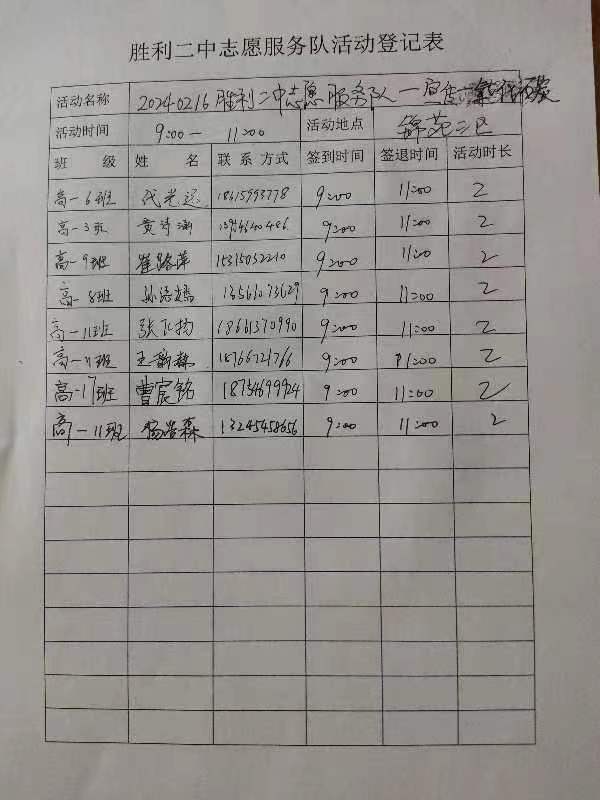 胜利二中志愿服务队活动登记表
活动名称 20240216胜利二中志愿服务队一
活动时间 9:00- 11:00 活动地点 锦苑二区
班 级 姓 名 联系方式 签到时间 签退时间 活动时长
高一6班 代光远 18615993778 9:00 11:00 2
高一3班 黄诗涵 9:00 11:00 2
高一9班 崔路萍 15315032210 9:00 11:00 2
高一8班 孙 13561073629 9:00 11:00 2
高一11班 张飞扬 18661370990 9:00 11:00 2
高一11班 王 18766721766 9:00 11:00 2
高一17班 曹宸铭 18754699924 9:00 11:00 2
高一11班 杨浩森 13245458656 9:00 11:00 2